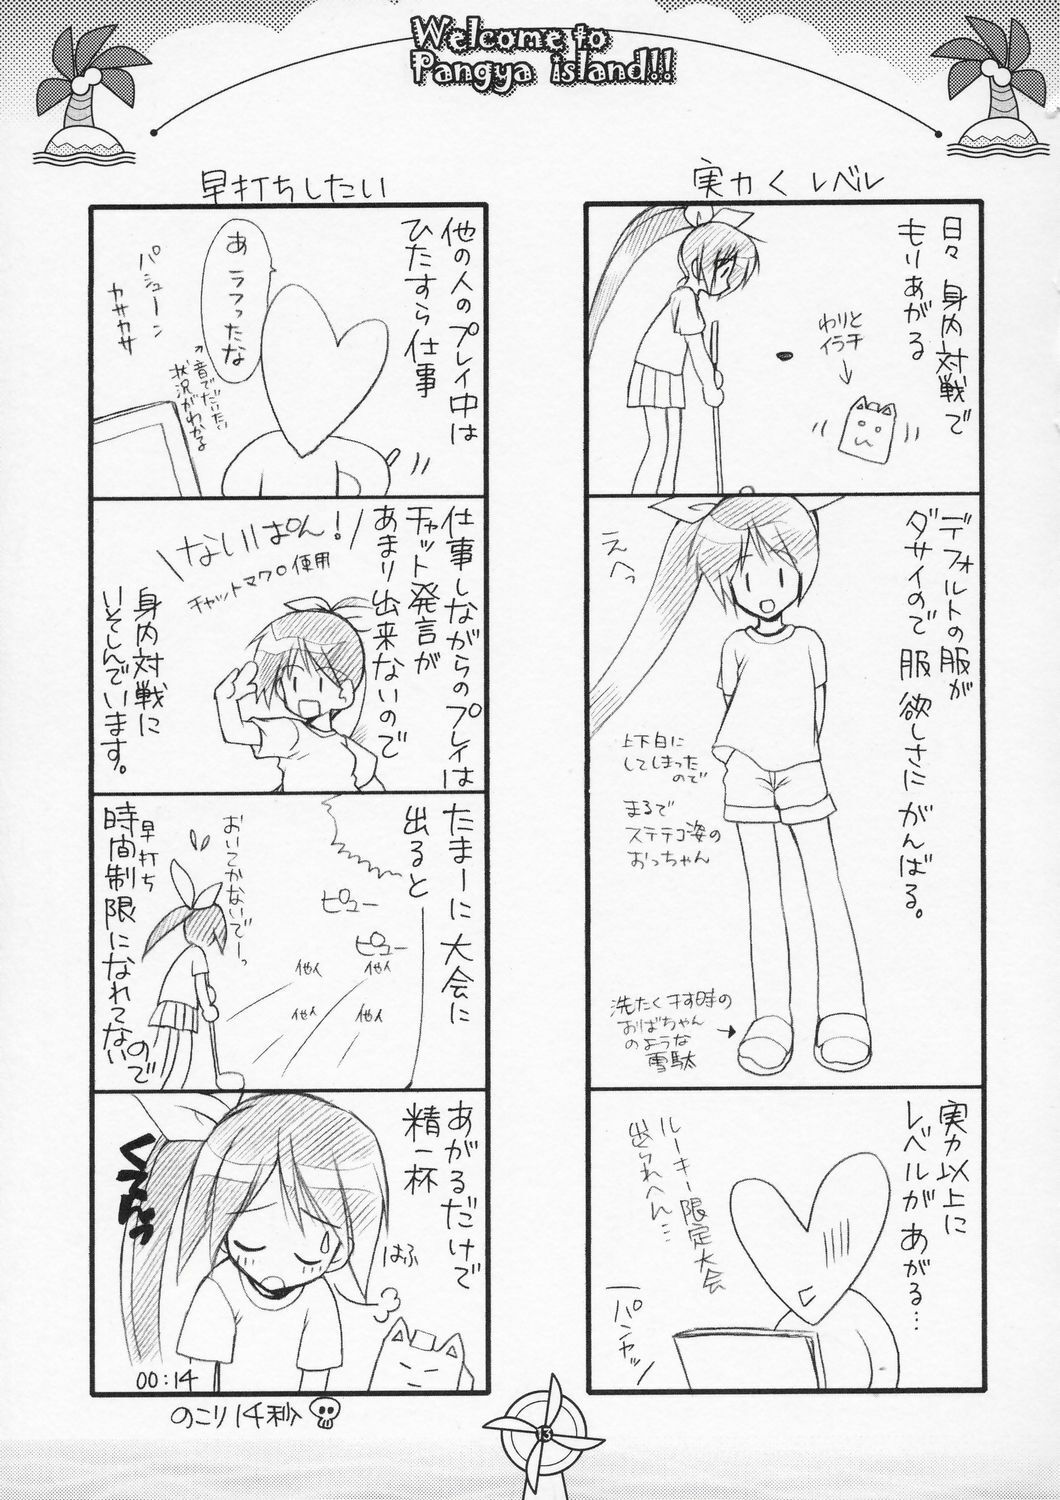 Welcome to
Pangya island!!
実力く レベル
日々 身内対戦で
もりあがる
わりと
イラチ
デフォルトの服が
ダサイので 服 欲しさに がんばる。
えへっ
上下白に
してしまった
ので
まるで
ステテコ姿の
おっちゃん
洗たく干す時の
おばちゃん
のような
雪駄
実力以上に
レベルが あがる…
ルーキー限定大会
出られへん…
パンヤッ
早打ちしたい
他の人のプレイ中は
ひたすら仕事
あ ラフったな
パシューン
カサカサ
音でだいたい
状況がわかる
仕事しながらのプレイは
チャット発言が
あまり出来ないので
ないぱん!
チャットマクロ使用
身内対戦に
いそしんでいます。
たまーに 大会に
出ると
ピュー
ピュー
他人
他人
他人
他人
おいてかないでーっ
早打ち
時間制限になれてない
ので
あがるだけで
精一杯
はふ
00:14
のこり14秒
13